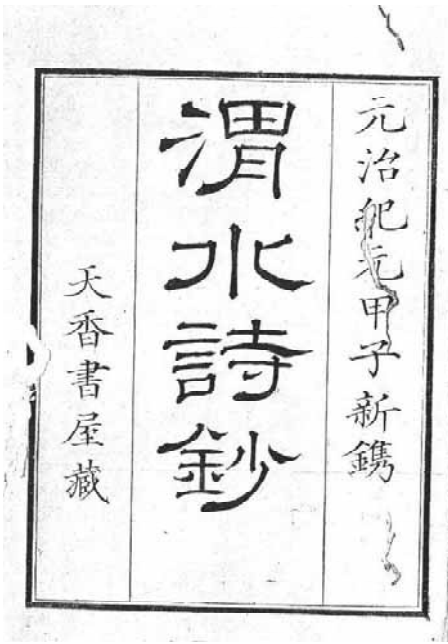 元治紀元甲子新鐫
渭水詩鈔
天香書屋藏